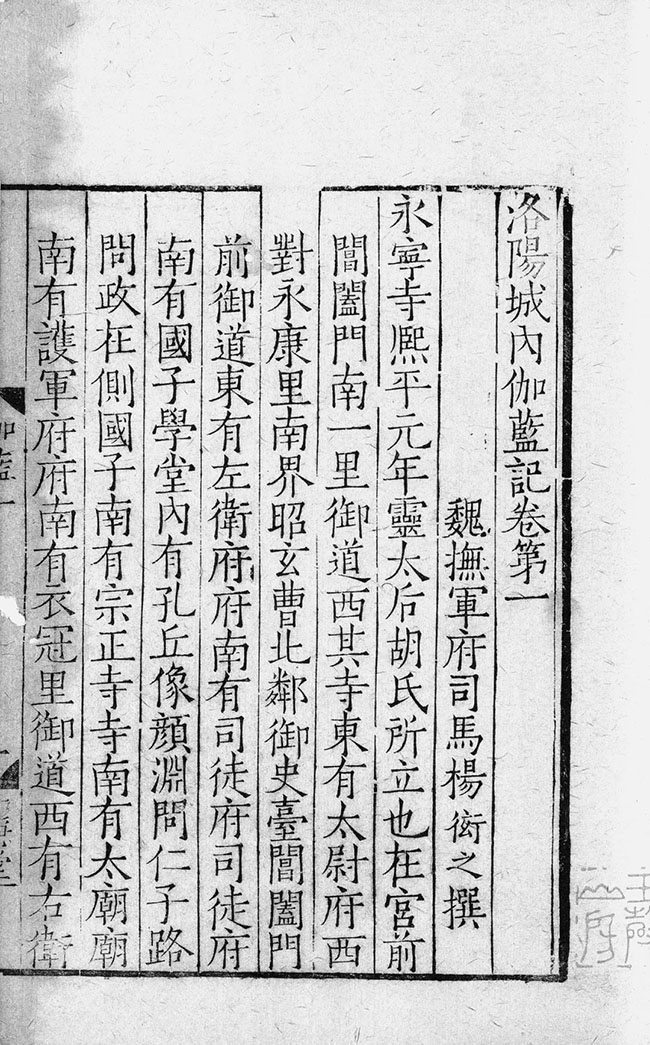 洛陽城內伽藍記卷第一
魏撫軍府司馬楊衒之撰
永寧寺熈平元年靈太后胡氏所立也在宮前
閶闔門南一里御道西其寺東有太尉府西
對永康里南界昭玄曹北鄰御史臺閶闔門
前御道東有左衛府府南有司徒府司徒府
南有國子學堂內有孔丘像顏淵問仁子路
問政在側國子南有宗正寺寺南有太廟廟
南有護軍府府南有衣冠里御道西有右衛
伽藍一